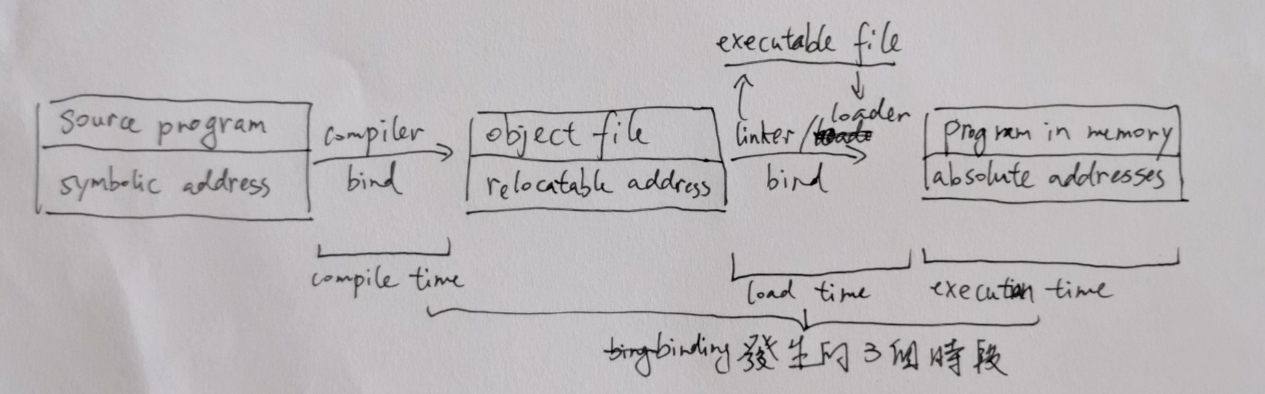 executable file
source program
symbolic address
compiler
bind
object file
relocatable address
linker/loader
bind
program in memory
absolute addresses
compile time
load time
execution time
binding 發生的3個時段